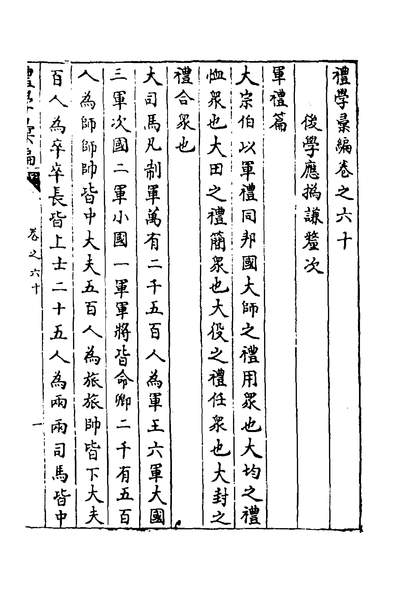 禮學彙編卷之六十
後學應撝謙釐次
軍禮篇
大宗伯以軍禮同邦國大師之禮用眾也大均之禮
恤眾也大田之禮簡眾也大役之禮任眾也大封之
禮合眾也
大司馬凡制軍萬有二千五百人為軍王六軍大國
三軍次國二軍小國一軍軍將皆命卿二千有五百
人為師師帥皆中大夫五百人為旅旅帥皆下大夫
百人為卒卒長皆上士二十五人為兩兩司馬皆中
禮學彙編
卷之六十
一